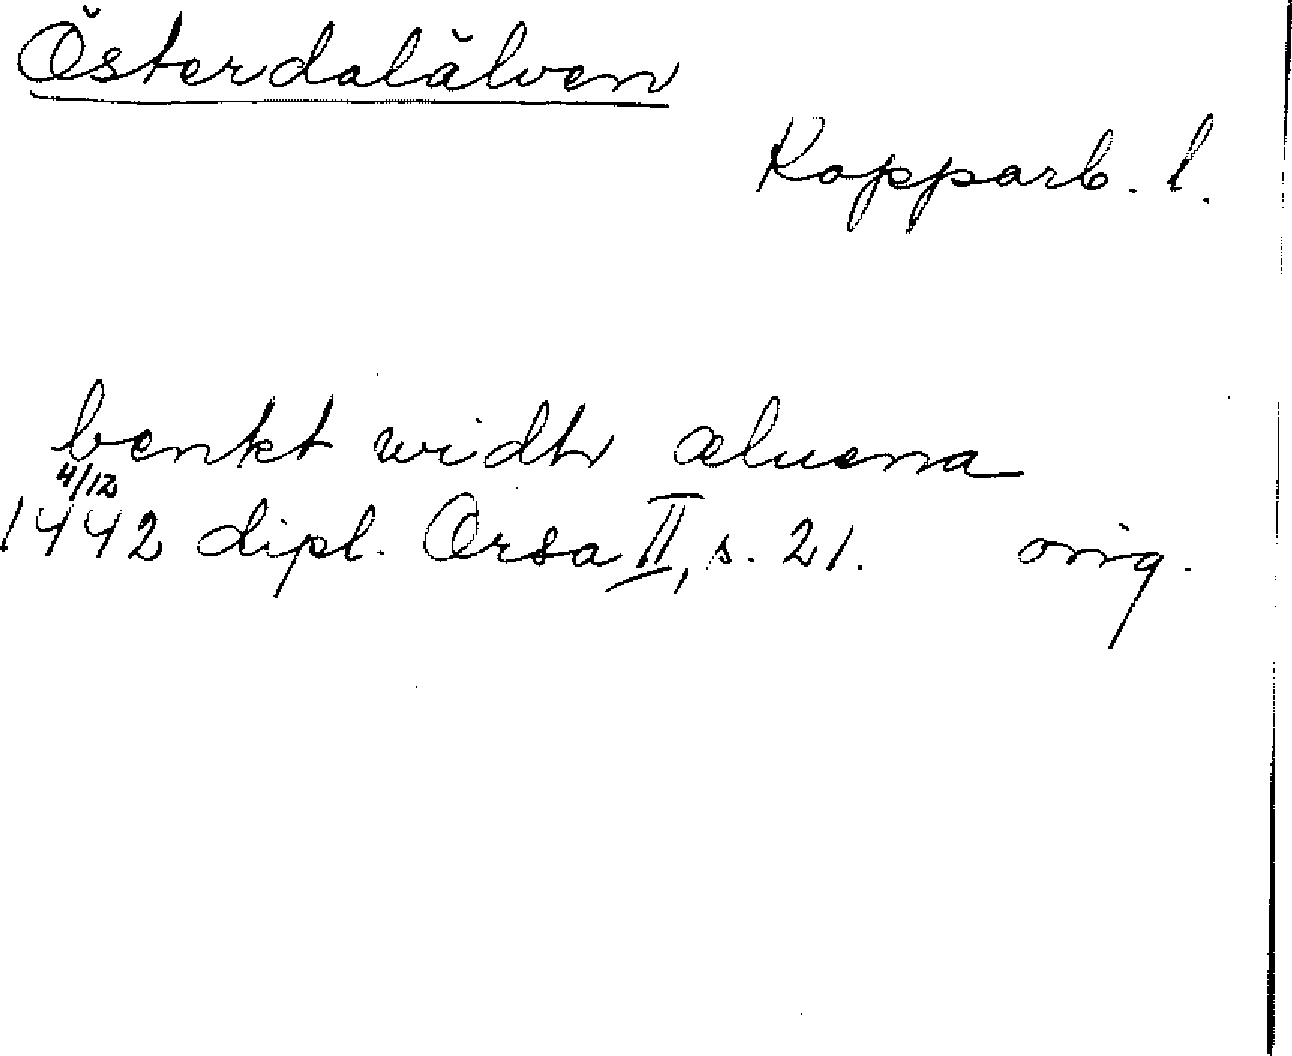 Österdalälven
Kopparb. l.
benkt widh æluena
4/12
1442 dipl. Orsa II, s. 21. orig.